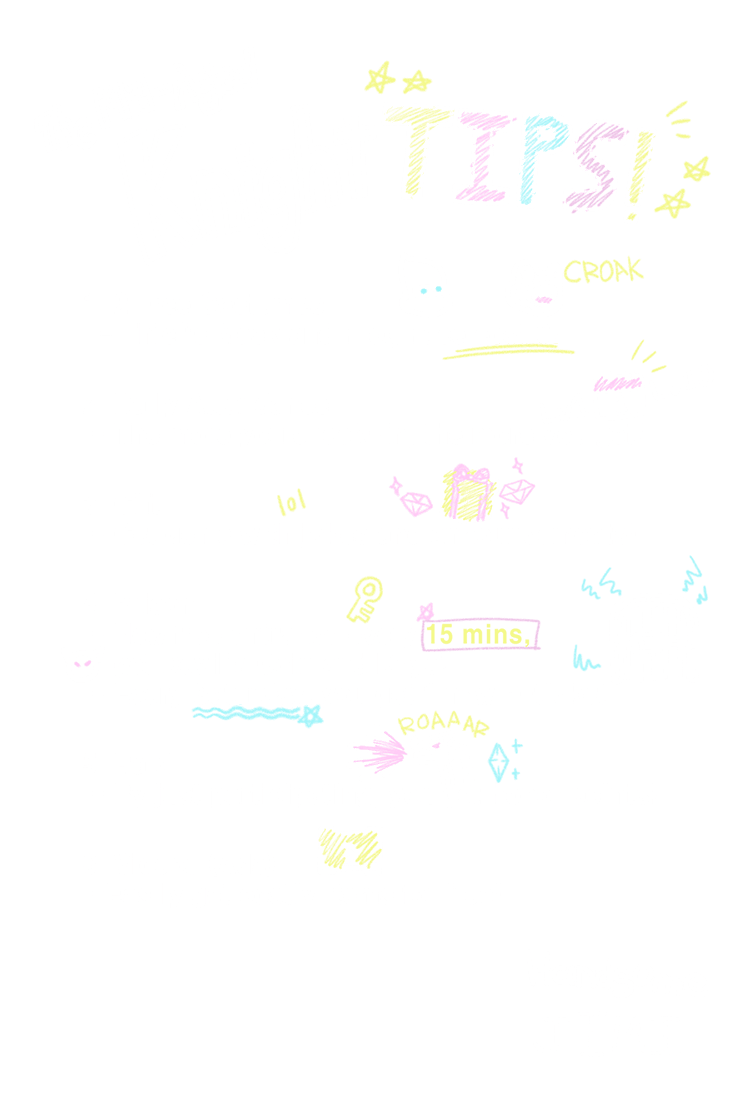 TIPS!
CROAK
lol
15 mins.
ROAAAR